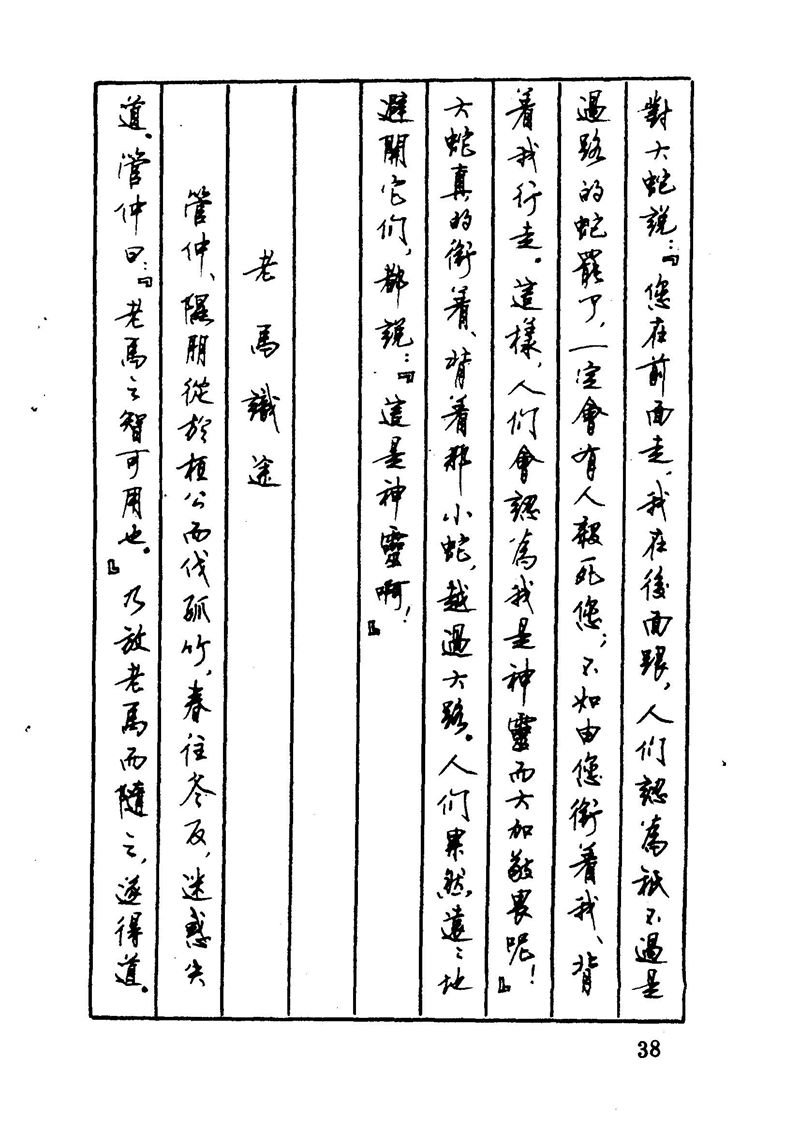 對大蛇說：『您在前面走，我在後面跟，人們認為祇不過是
過路的蛇罷了，一定會有人殺死您；不如由您銜着我、背
着我行走。這樣，人們會認為我是神靈而大加敬畏呢！』
大蛇真的銜着、背着那小蛇，越過大路。人們果然遠〻地
避開它們，都說：『這是神靈啊！』
老馬識途
管仲、隰朋從於桓公而伐孤竹，春往冬反，迷惑失
道。管仲曰：『老馬之智可用也。』乃放老馬而隨之，遂得道。
38